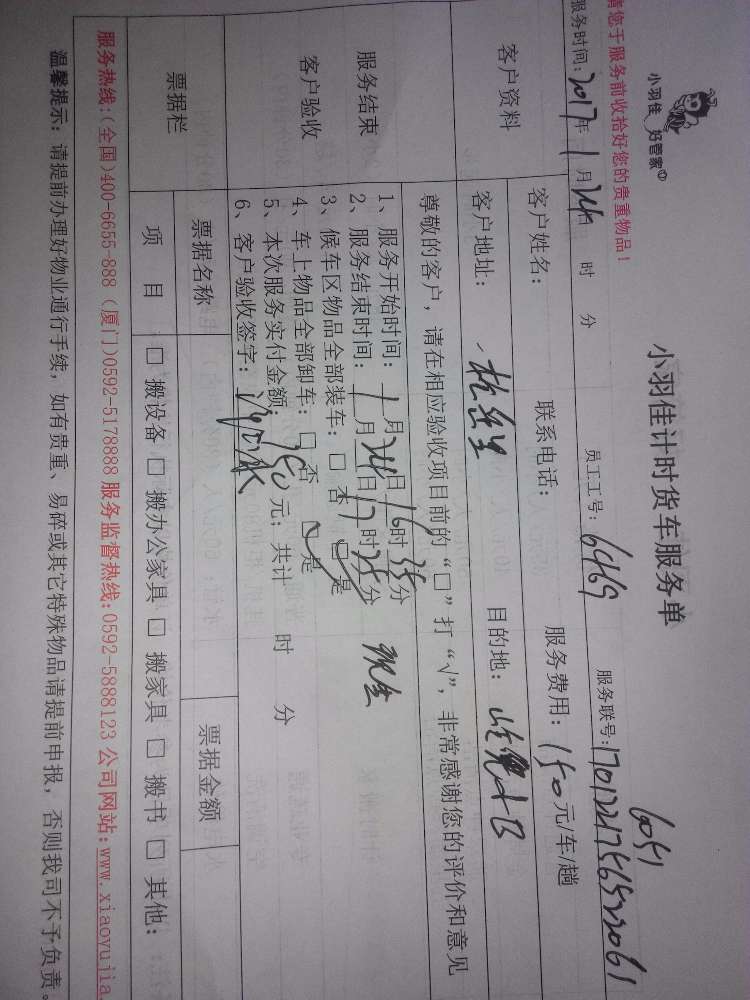 小羽佳 好管家
小羽佳计时货车服务单
请您于服务前收拾好您的贵重物品！
6051
服务时间：2017年1月24日 时 分 员工工号：6469 服务联号：
客户资料
客户姓名： 联系电话： 服务费用：150元/车/趟
客户地址： 目的地：
服务结束
客户验收
尊敬的客户，请在相应验收项目前的“□”打“√”，非常感谢您的评价和意见
1、服务开始时间：1月24日16时35分
2、服务结束时间：1月24日17时25分 现金
3、候车区物品全部装车：□否 □是
4、车上物品全部卸车：□否 □是
5、本次服务实付金额150元；共计 时 分
6、客户验收签字：
票据栏
票据名称 票据金额
项 目 □搬设备 □搬办公家具 □搬家具 □搬书 □其他：
服务热线：（全国）400-6655-888（厦门）0592-5178888 服务监督热线：0592-5888123 公司网站：www.xiaoyujia.
温馨提示：请提前办理好物业通行手续，如有贵重、易碎或其它特殊物品请提前申报，否则我司不予负责。